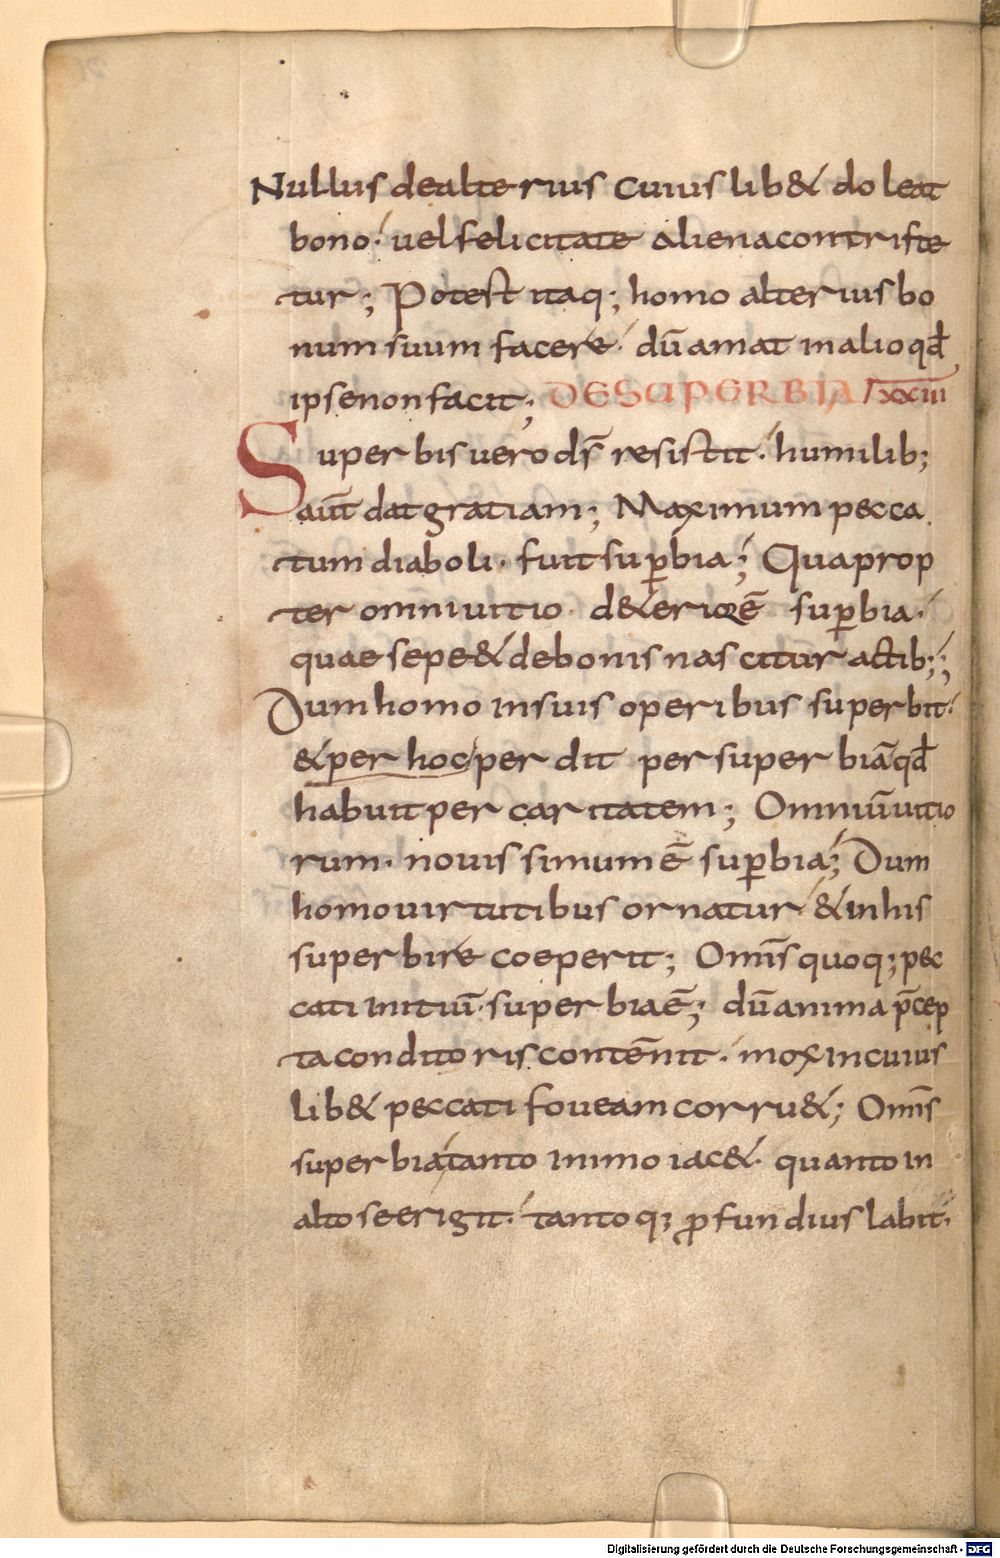 Nullus dealterius cuiuslib& doleat
bono· uelfelicitate alienacontriste
tur; Potest itaq; homo alterius bo
num suum facere· dū amat in alio qđ
ipsenonfacit; DE SUPERBIA XXIII
Superbis uero ds̄ resistit· humilib;
aūt dat gratiam; Maximum pecca
tum diaboli· fuit sup̱bia; Quaprop
ter omni uitio d&erius ē sup̱bia·
quae sepe & debonis nascitur actib;;
Dum homo insuis operibus superbit·
& per hoc perdit per superbiā qđ
habuit per caritatem; Omniū uitio
rum· nouissimum ē sup̱bia; Dum
homo uirtutibus ornatur & inhis
superbire coeperit; Omīs quoq; pec
cati initiū· superbia ē; dū anima p̄cep
ta conditoris contēnit· mox incuius
lib& peccati foueam corru&; Omīs
superbia tanto inimo iac&· quanto in
alto se erigit· tantoq; ꝓfundius labit·
Digitalisierung gefördert durch die Deutsche Forschungsgemeinschaft - DFG